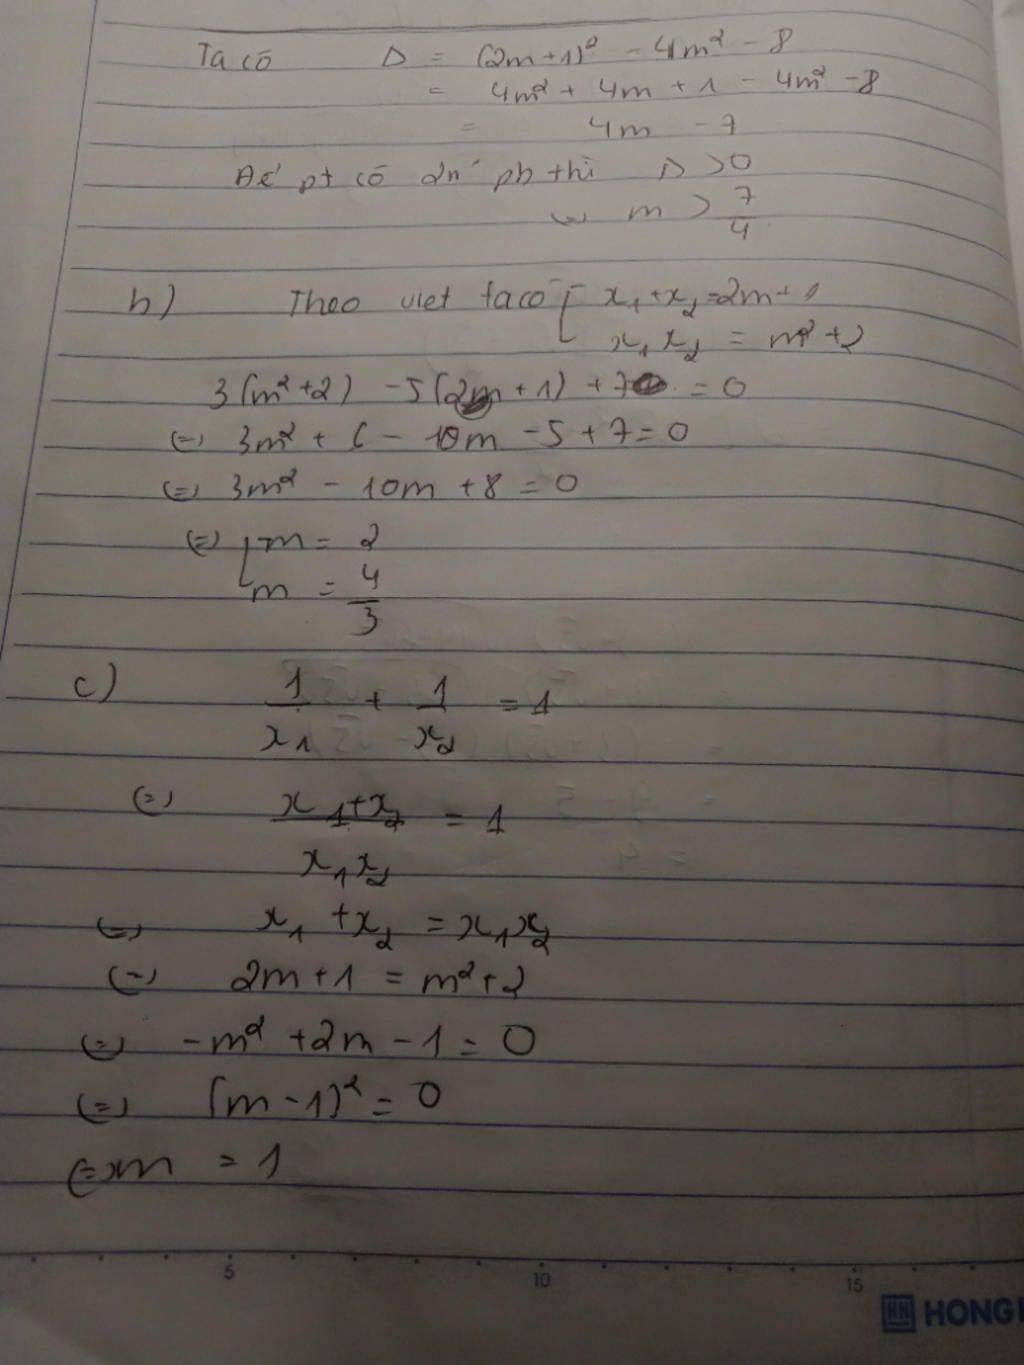 Ta có Δ = (2m+1)² - 4m² - 8
= 4m² + 4m + 1 - 4m² - 8
= 4m - 7
Để pt có 2n' pb thì Δ > 0
(=) m > 7/4
b) Theo viet ta có [ x₁+x₂=2m+1
x₁x₂ = m²+2
3(m²+2) -5(2m+1) +7 = 0
(=) 3m² + 6 - 10m - 5 + 7 = 0
(=) 3m² - 10m + 8 = 0
(=) [ m = 2
m = 4/3
c) 1/x₁ + 1/x₂ = 1
(=) (x₁+x₂)/(x₁x₂) = 1
(=) x₁ + x₂ = x₁x₂
(=) 2m+1 = m²+2
(=) -m² +2m - 1 = 0
(=) (m-1)² = 0
(=) m = 1
5 10 15
HH HONG